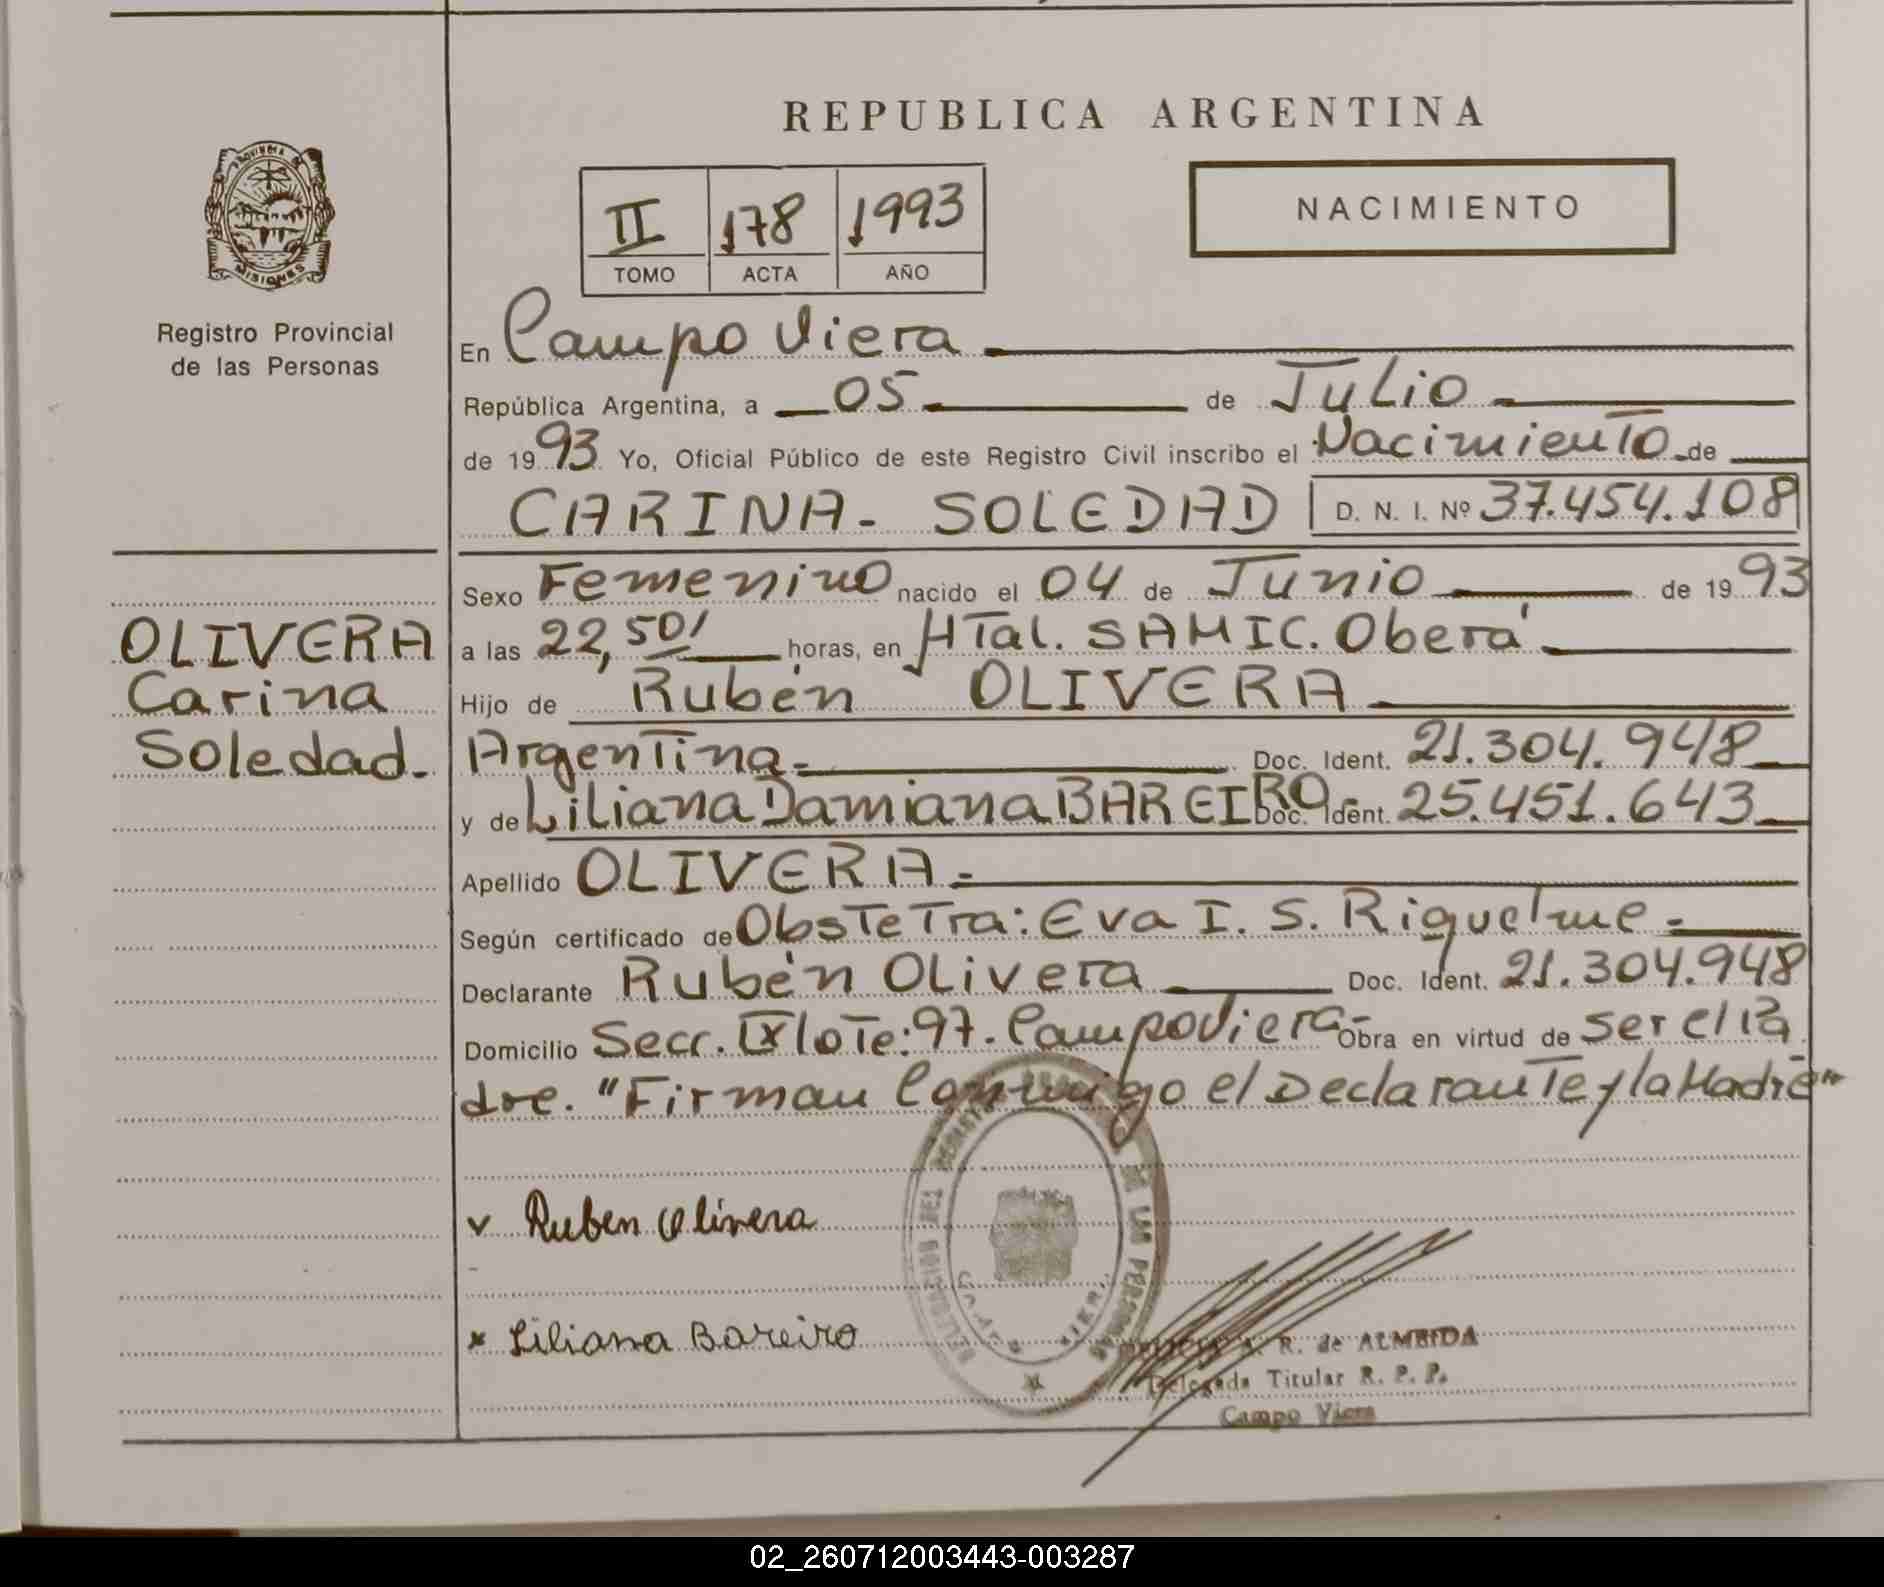 REPUBLICA ARGENTINA
PROVINCIA DE
MISIONES
Registro Provincial
de las Personas
II 178 1993
TOMO ACTA AÑO
NACIMIENTO
En Campo Viera
República Argentina, a 05 de Julio
de 1993 Yo, Oficial Público de este Registro Civil inscribo el Nacimiento de
CARINA - SOLEDAD D. N. I. Nº 37.454.108
Sexo Femenino nacido el 04 de Junio de 1993
OLIVERA
a las 22,50/ horas, en HTal. SAMIC. Oberá
Carina
Hijo de Rubén OLIVERA
Soledad.
Argentina Doc. Ident. 21.304.948
y de Liliana Damiana BAREIRO Doc. Ident. 25.451.643
Apellido OLIVERA
Según certificado de Obstetra: Eva I. S. Riquelme
Declarante Rubén Olivera Doc. Ident. 21.304.948
Domicilio Secc. IX lote: 97. Campo Viera Obra en virtud de ser el Pa
dre. "Firman Conmigo el Declarante y la Madre"
Ruben Olivera
Liliana Bareiro
DE LAS PERSONAS
A. R. de ALMEIDA
Delegada Titular R. P. P.
Campo Viera
02_260712003443-003287